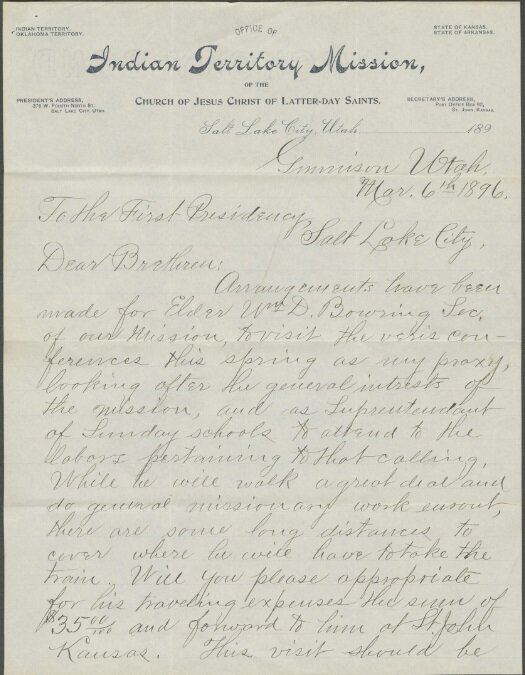 INDIAN TERRITORY.
OKLAHOMA TERRITORY.
OFFICE OF
STATE OF KANSAS.
STATE OF ARKANSAS.
Indian Territory Mission,
OF THE
CHURCH OF JESUS CHRIST OF LATTER-DAY SAINTS.
PRESIDENT'S ADDRESS,
376 W. FOURTH NORTH ST.
SALT LAKE CITY, UTAH.
SECRETARY'S ADDRESS,
POST OFFICE BOX 92,
ST. JOHN, KANSAS.
Salt Lake City, Utah, 189
Gunnison Utah.
Mar. 6th 1896.
To the First Presidency,
Salt Lake City,
Dear Brethren:
Arrangements have been
made for Elder Wm D. Bowring Sec.
of our Mission, to visit the veris con-
ferences this spring as my proxy,
looking after the general intrests of
the mission, and as Suprentendant
of Sunday schools to attend to the
labors pertaining to that calling.
While he will walk a great deal and
do general missionary work enrout,
there are some long distances to
cover where he will have to take the
train. Will you please appropriate
for his traveling expenses the sum of
$35 00/100 and forward to him at St. John
Kansas. This visit should be